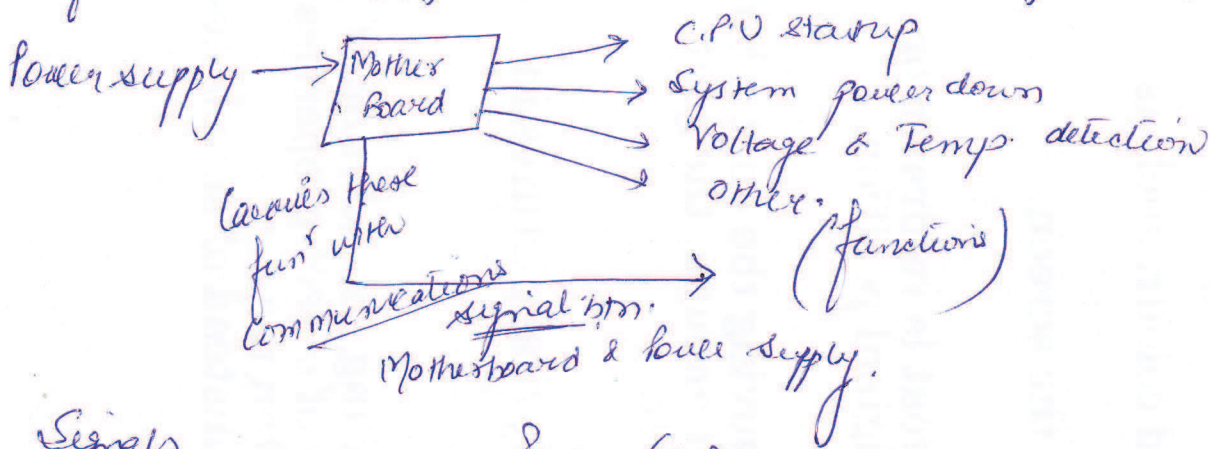 Power supply
Mother
Board
C.P.U startup
System power down
Voltage & Temp. detection
Other.
(functions)
Carries these
funⁿ with
Communications
signal btn.
Motherboard & Power Supply.
Signals